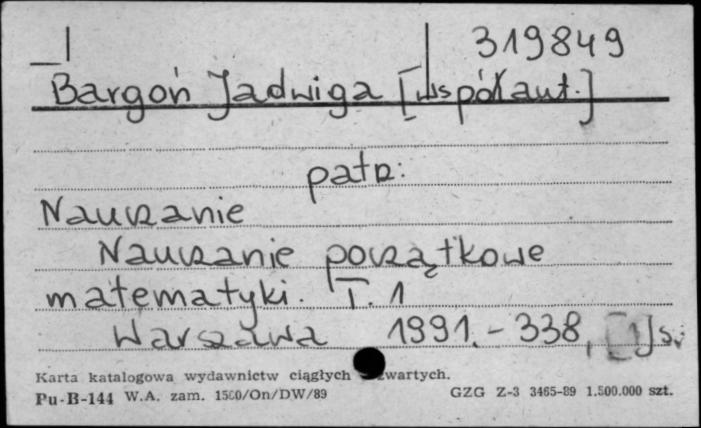 319849
Bargoń Jadwiga [współaut.]
patrz:
Nauczanie
Nauczanie początkowe
matematyki. T. 1
Warszawa 1991. - 338, [1] s.
Karta katalogowa wydawnictw ciągłych wartych.
Pu-B-144 W.A. zam. 1500/On/DW/89 GZG Z-3 3465-89 1.500.000 szt.